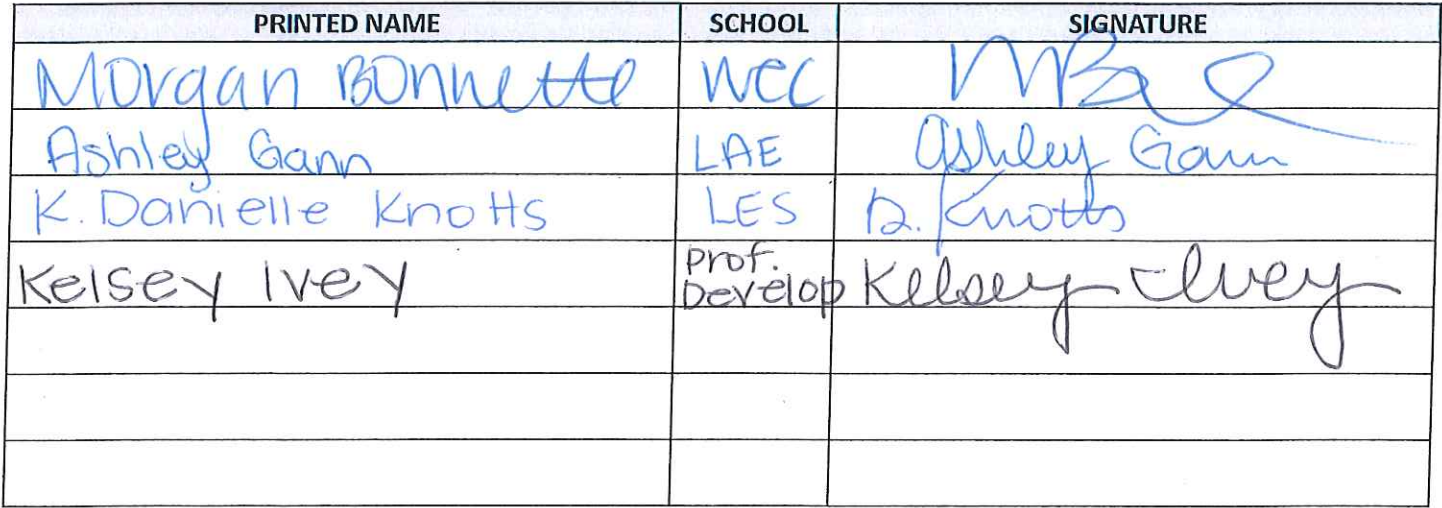 PRINTED NAME SCHOOL SIGNATURE
Morgan Bonnette WCC
Ashley Gann LAE Ashley Gann
K. Danielle Knotts LES D. Knotts
Kelsey Ivey Prof. Develop Kelsey Ivey